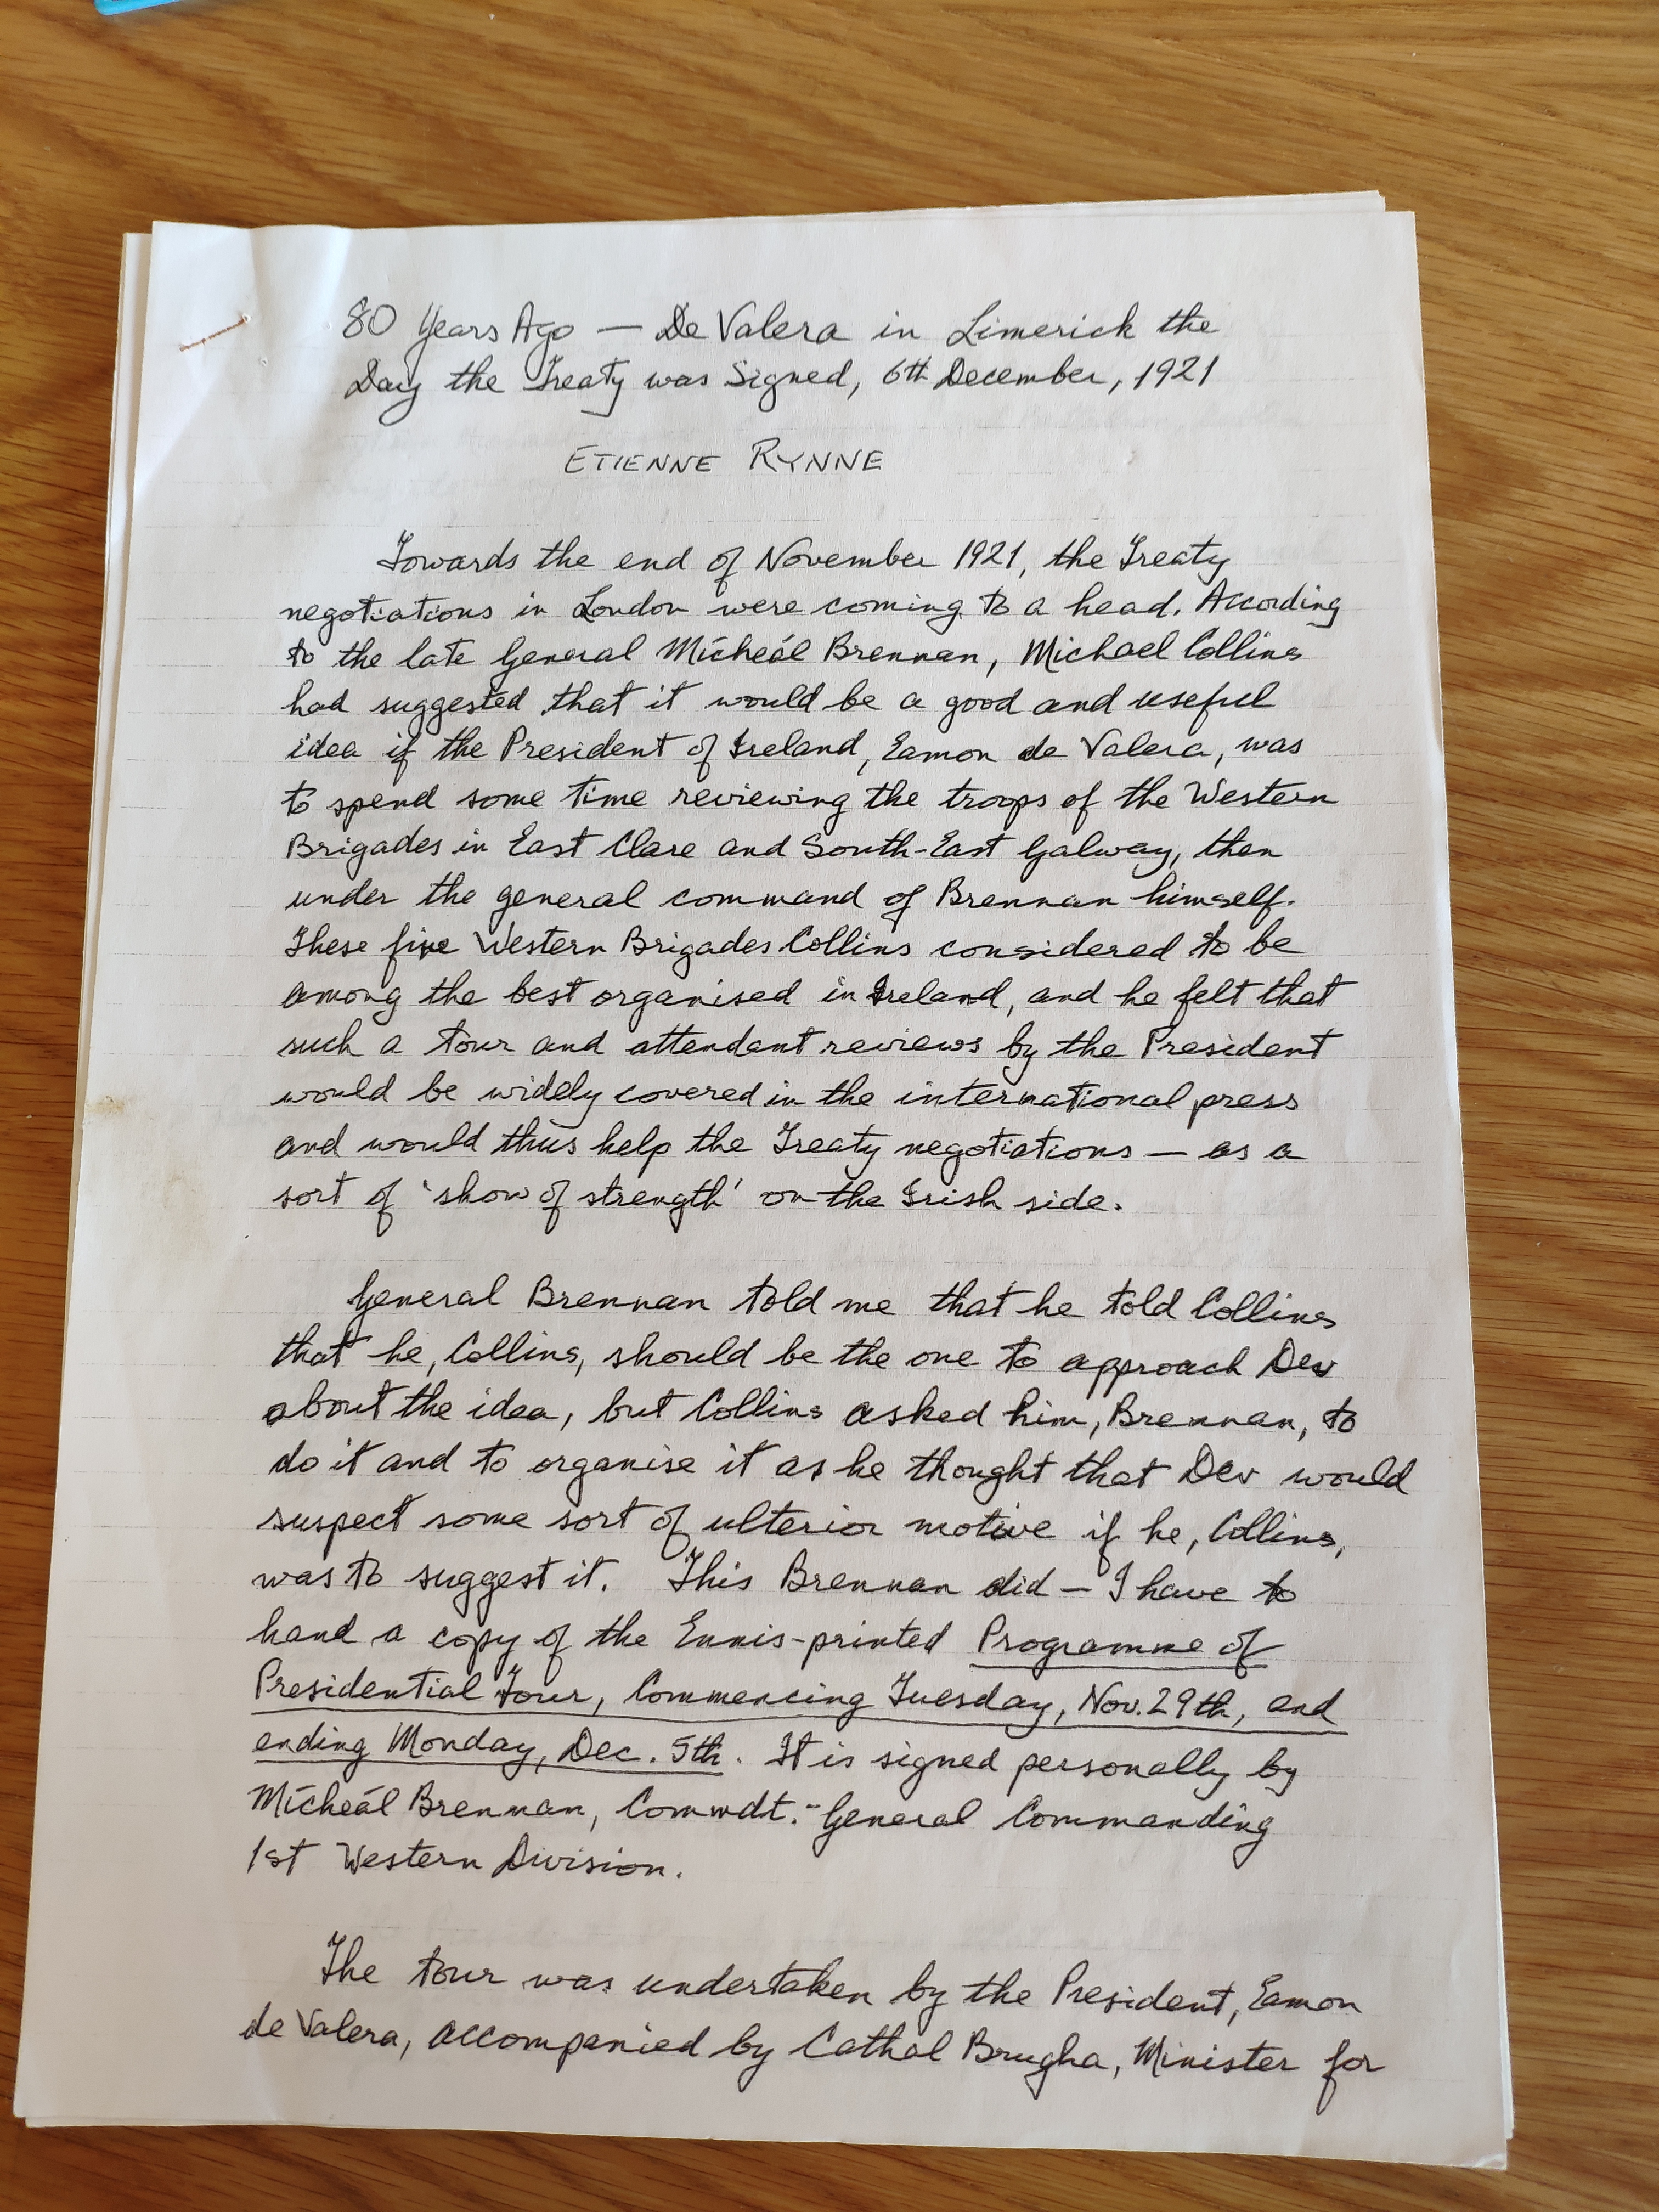 80 Years Ago — De Valera in Limerick the
Day the Treaty was Signed, 6th December, 1921
ETIENNE RYNNE
Towards the end of November 1921, the Treaty
negotiations in London were coming to a head. According
to the late General Mícheál Brennan, Michael Collins
had suggested that it would be a good and useful
idea if the President of Ireland, Eamon de Valera, was
to spend some time reviewing the troops of the Western
Brigades in East Clare and South-East Galway, then
under the general command of Brennan himself.
These five Western Brigades Collins considered to be
among the best organised in Ireland, and he felt that
such a tour and attendant reviews by the President
would be widely covered in the international press
and would thus help the Treaty negotiations — as a
sort of 'show of strength' on the Irish side.
General Brennan told me that he told Collins
that he, Collins, should be the one to approach Dev
about the idea, but Collins asked him, Brennan, to
do it and to organise it as he thought that Dev would
suspect some sort of ulterior motive if he, Collins,
was to suggest it. This Brennan did — I have to
hand a copy of the Ennis-printed Programme of
Presidential Tour, Commencing Tuesday, Nov. 29th, and
ending Monday, Dec. 5th. It is signed personally by
Mícheál Brennan, Commdt.-General Commanding
1st Western Division.
The tour was undertaken by the President, Eamon
de Valera, accompanied by Cathal Brugha, Minister for